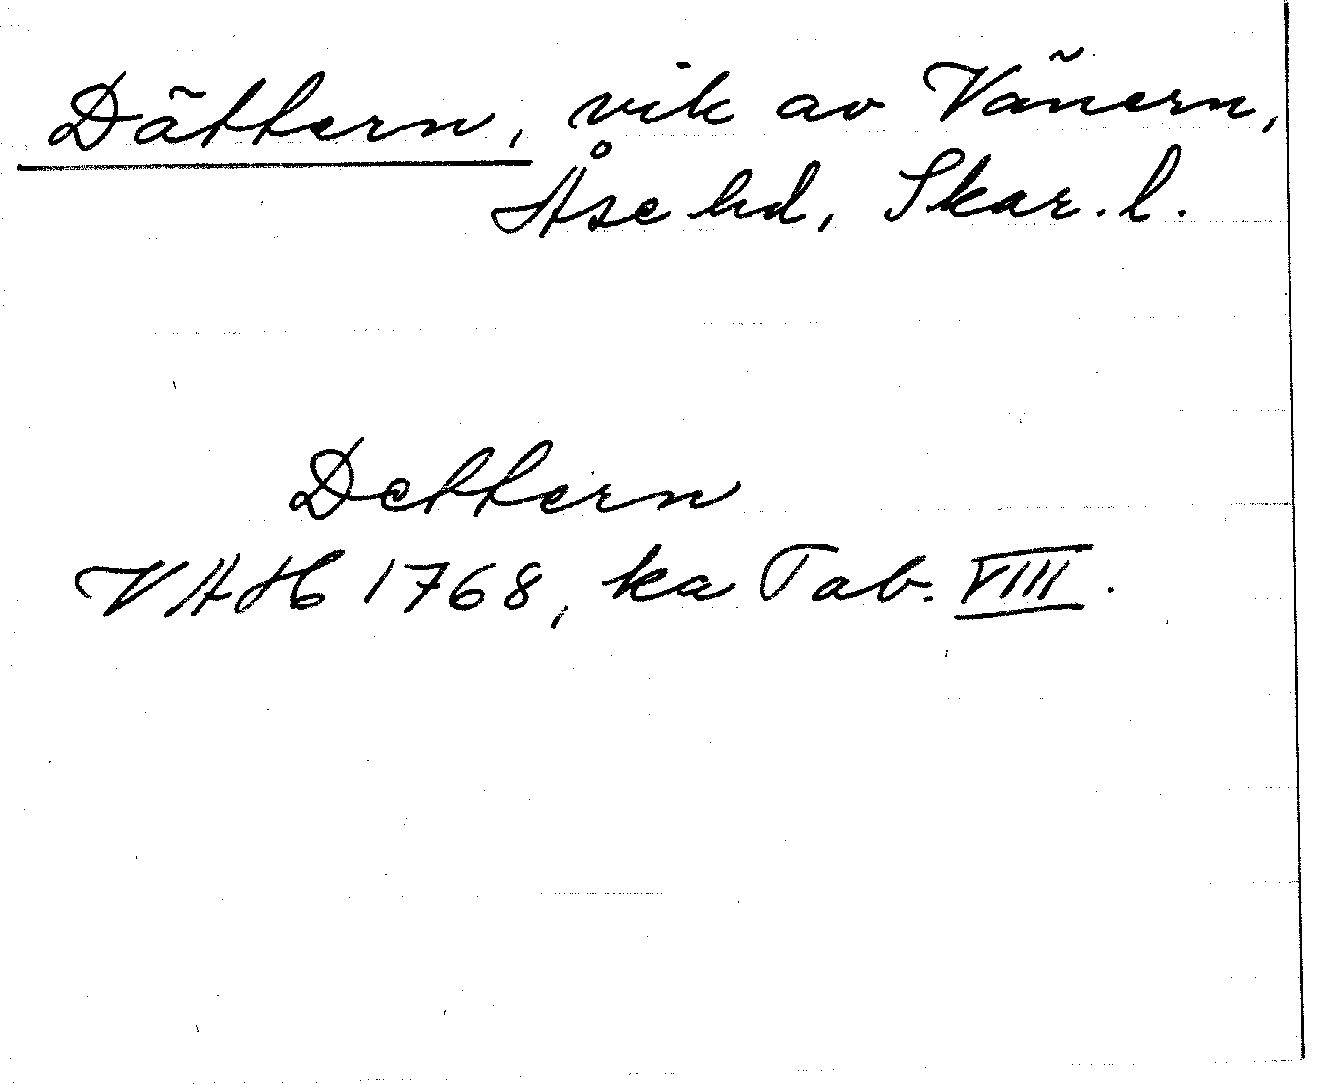 Dättern, vik av Vänern,
Åse hd, Skar. l.
Dettern
VAH 1768, ka Tab. VIII.